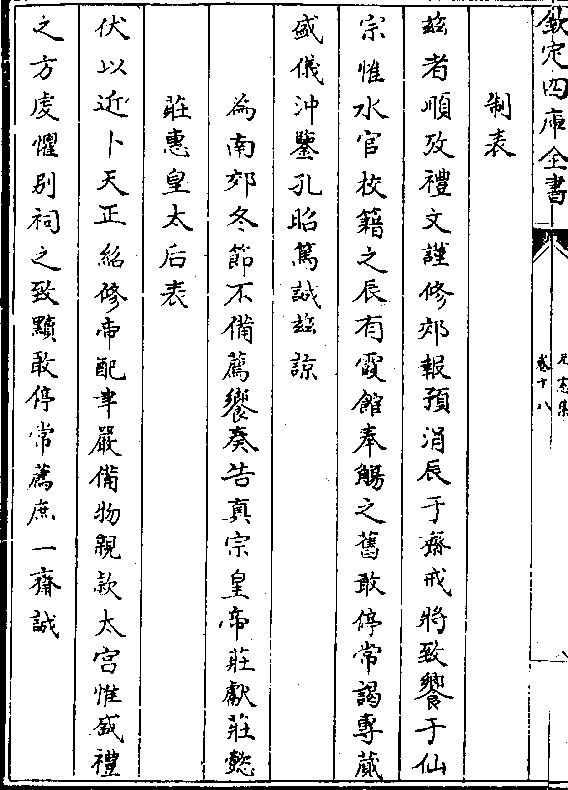 欽定四庫全書
元憲集
卷十八
制表
兹者順攷禮文謹修郊報預涓辰于齋戒將致饗于仙
宗惟水官校籍之辰有霞館奉觴之舊敢停常謁專蕆
盛儀沖鑒孔昭篤誠兹諒
為南郊冬節不備薦饗奏告真宗皇帝莊獻莊懿
莊惠皇太后表
伏以近卜天正紹修帝配事嚴備物親款太宫惟盛禮
之方虔懼别祠之致黷敢停常薦庶一齋誠